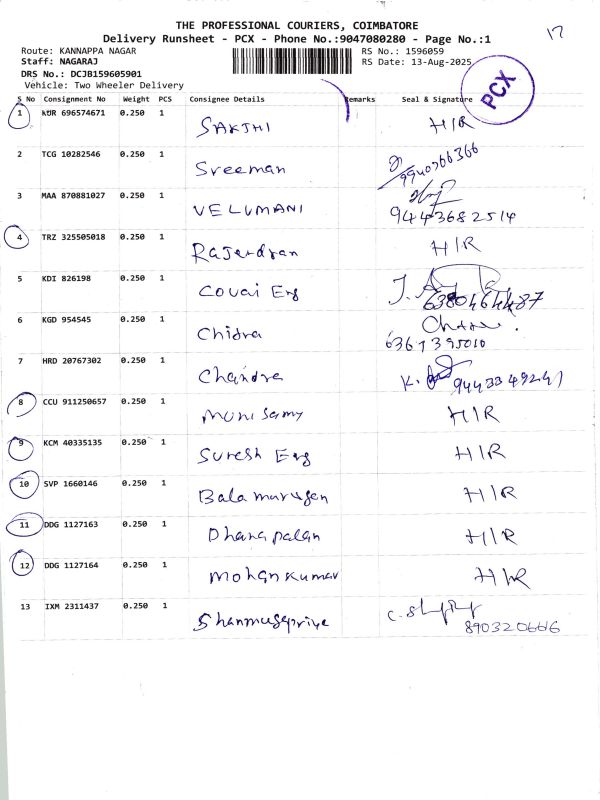 THE PROFESSIONAL COURIERS, COIMBATORE
Delivery Runsheet - PCX - Phone No.:9047080280 - Page No.:1
17
Route: KANNAPPA NAGAR
RS No.: 1596059
Staff: NAGARAJ
RS Date: 13-Aug-2025
DRS No.: DCJB159605901
Vehicle: Two Wheeler Delivery
PCX
S No Consignment No Weight PCS Consignee Details Remarks Seal & Signature
1 KUR 696574671 0.250 1 SAKTHI H/R
2 TCG 10282546 0.250 1 Sreeman 9940766366
3 MAA 870881027 0.250 1 VELUMANI 9443682514
4 TRZ 325505018 0.250 1 Rajendran H/R
5 KDI 826198 0.250 1 Covai Eng 6380464487
6 KGD 954545 0.250 1 Chidra 6361395010
7 HRD 20767302 0.250 1 Chandra K. 9443349241
8 CCU 911250657 0.250 1 Munisamy H/R
9 KCM 40335135 0.250 1 Suresh Eng H/R
10 SVP 1660146 0.250 1 Balamurugan H/R
11 DDG 1127163 0.250 1 Dhanapalan H/R
12 DDG 1127164 0.250 1 Mohankumar H/R
13 IXM 2311437 0.250 1 Shanmugapriya 8903206616